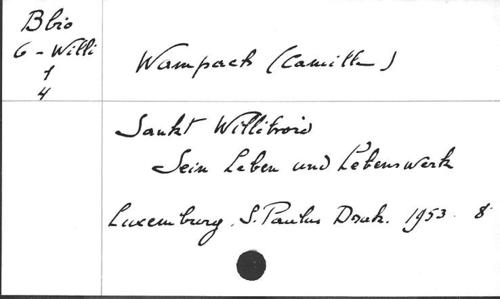 B bio
6 - Willi
1
4
Wampach (Camille)
Sankt Willibrord
Sein Leben und Lebenswerk
Luxemburg, S. Paulus Druck. 1953 8°